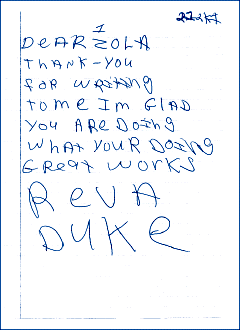 1
DeAR ZOLA
thANK-you
foR WRiting
to me Im GLAD
you ARe Doing
what youR Doing
GReat WoRKS
ReVA
DuKe